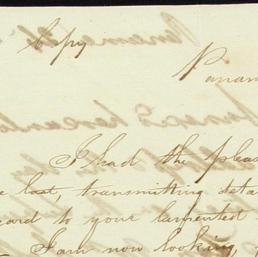 Copy
Panam
I had the pleas
e last, transmitting deta
gard to your lamented
I am now looking,